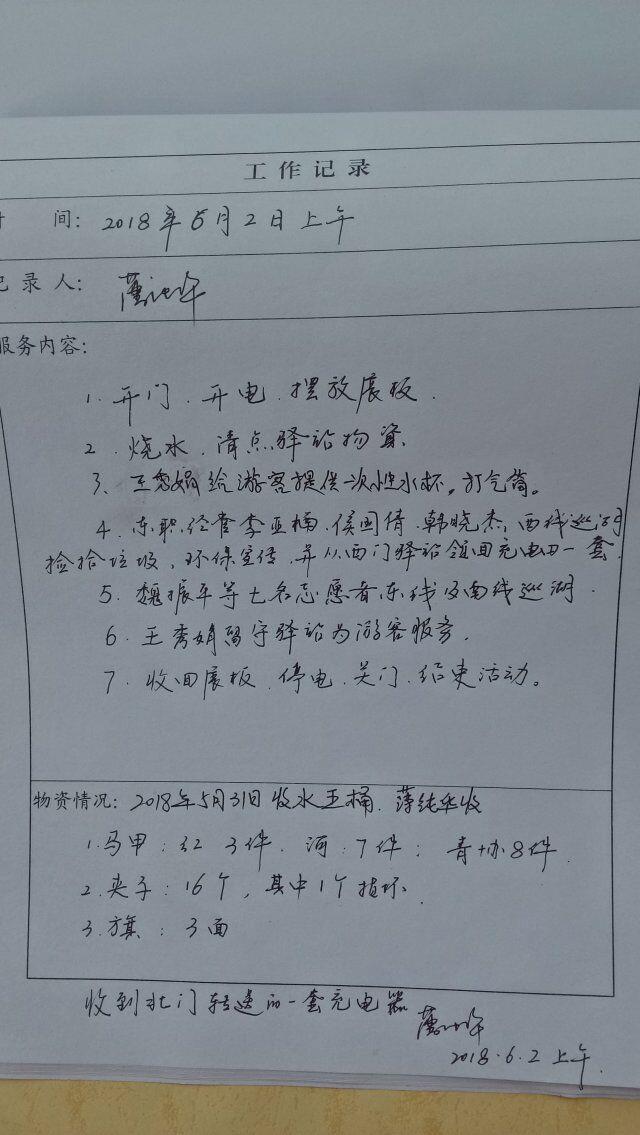 工作记录
间: 2018年6月2日上午
记录人:
服务内容:
1. 开门、开电、摆放展板.
2. 烧水、清点驿站物资
3、王秀娟给游客提供一次性水杯。打气筒。
4. 东职经管李亚楠、侯国倩、韩晓杰,西线巡湖
捡拾垃圾、环保宣传,并从西门驿站领回充电田一套
5. 魏振平等七名志愿者东线及南线巡湖.
6. 王秀娟留守驿站为游客服务.
7. 收回展板、停电、关门、结束活动。
物资情况: 2018年5月31日收水五桶. 薄纯华收
1. 马甲: 红 3件. 河: 7件; 青协8件.
2. 夹子: 16个, 其中1个损坏.
3. 旗: 3面
收到北门转送的一套充电器
2018.6.2 上午.